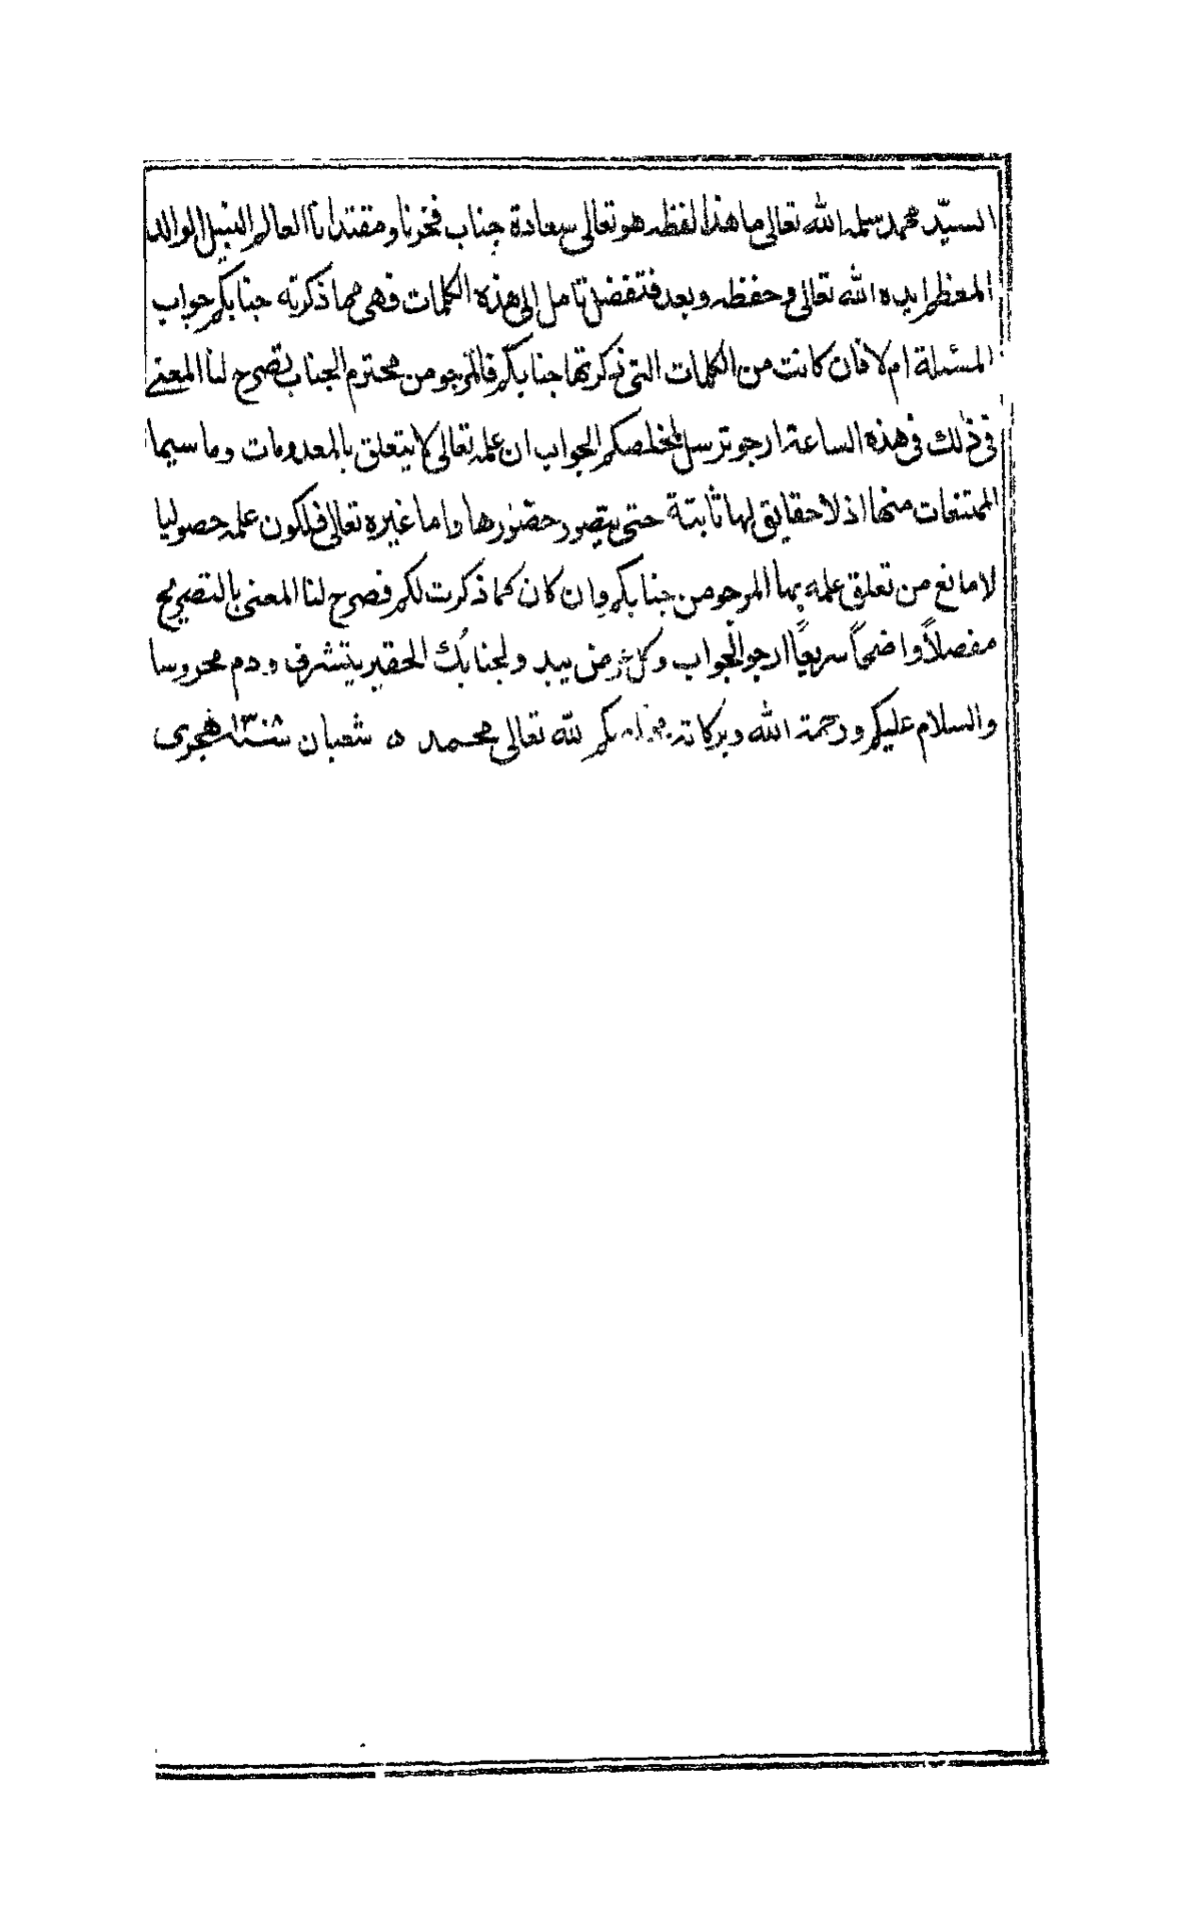 السيّد محمد سلمه الله تعالى ما هذا لفظه هو تعالى سعادة جناب فخرنا ومقتدانا العالم النبيل الوالد
المعظم ايده الله تعالى وحفظه وبعد فتفضل تامل الى هذه الكلمات فهى مما ذكرته جنابكم جواب
المسئلة ام لا فان كانت من الكلمات التى ذكرتها جنابكم فالمرجو من محترم الجناب تصرح لنا المعنى
فى ذلك فى هذه الساعة ارجو ترسل لمخلصكم الجواب ان علمه تعالى لا يتعلق بالمعدومات وما سيما
الممتنعات منها اذ لا حقايق لها ثابتة حتى يتصور حضورها واما غيره تعالى فلكون علمه حصوليا
لا مانع من تعلق علمه بها المرجو من جنابكم وان كان كما ذكرت لكم فصرح لنا المعنى بالتصريح
مفصلاً واضحاً سريعاً ارجو الجواب وكل من يبد ولجنابك الحقير يتشرف ودم محروسا
والسلام عليكم ورحمة الله وبركاته لله تعالى محمد ٥ شعبان سنة ١٣٠٨ هجرى